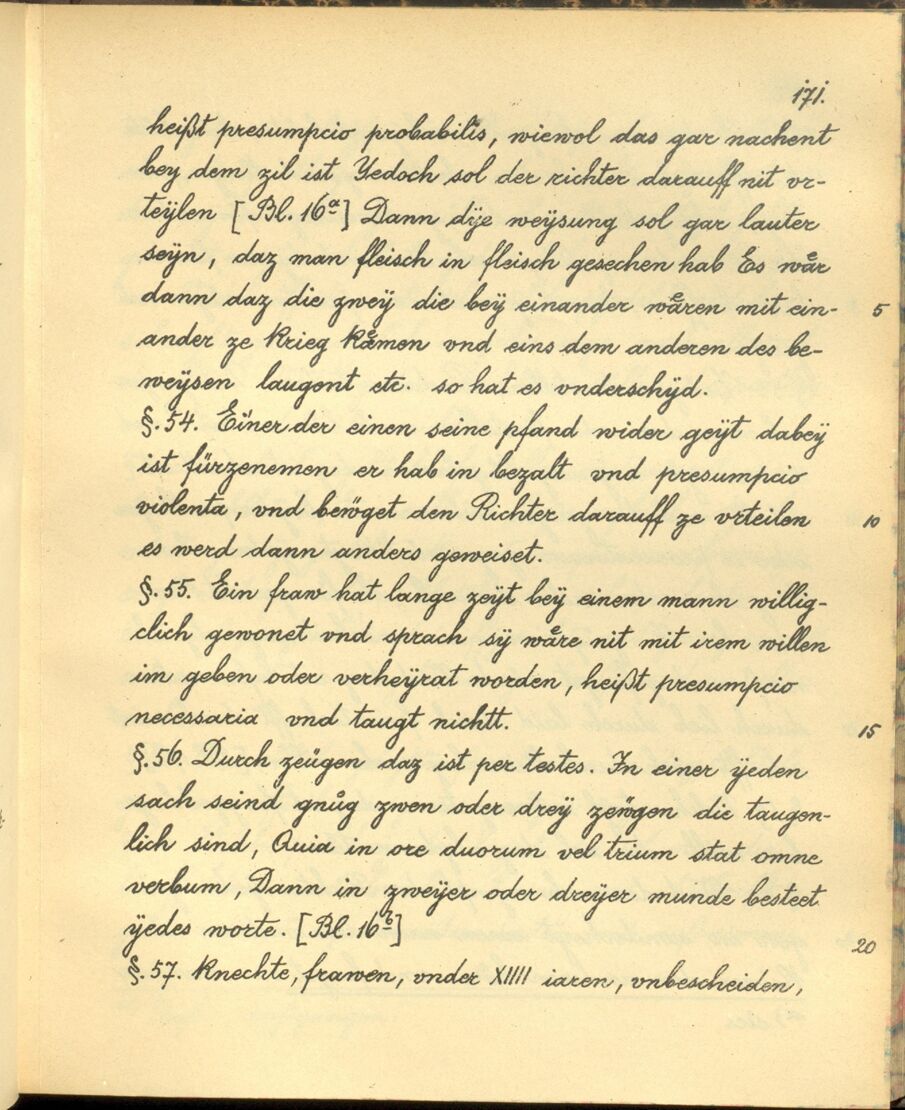 171.
heißt presumpcio probabilis, wiewol das gar nachent
bey dem zil ist Yedoch sol der richter darauff nit vr-
teÿlen [Bl. 16ª] Dann dÿe weÿsung sol gar lauter
seÿn, daz man fleisch in fleisch gesechen hab Es waͤr
dann daz die zweÿ die beÿ einander waͤren mit ein-
5
ander ze krieg kaͤmen vnd eins dem anderen des be-
weÿsen laugent etc. so hat es vnderschÿd.
§. 54. Einer der einen seine pfand wider geÿt dabeÿ
ist fürzenemen er hab in bezalt vnd presumpcio
violenta, vnd bewͤget den Richter darauff ze vrteilen
10
es werd dann anders geweiset.
§. 55. Ein fraw hat lange zeÿt beÿ einem mann willig-
clich gewonet vnd sprach sÿ waͤre nit mit irem willen
im geben oder verheÿrat worden, heißt presumpcio
necessaria vnd taugt nichtt.
15
§. 56. Durch zeügen daz ist per testes. In einer ÿeden
sach seind gnůg zwen oder dreÿ zeẅgen die taugen-
lich sind, Quia in ore duorum vel trium stat omne
verbum, Dann in zweÿer oder dreÿer munde besteet
ÿedes worte. [Bl. 16ᵇ]
20
§. 57. Knechte, frawen, vnder XIIII iaren, vnbescheiden,